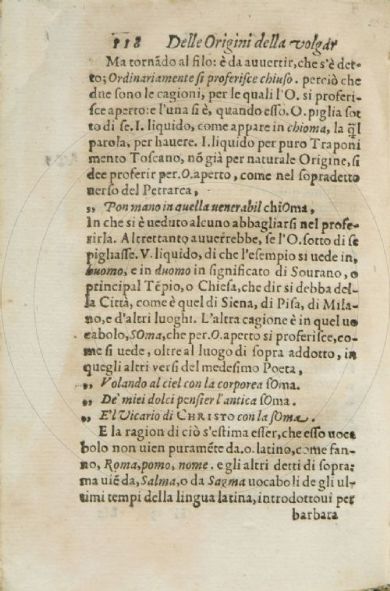 118 Delle Origini della volgar
Ma tornãdo al filo: è da auuertir, che s'è det-
to; Ordinariamente si proferisce chiuso. perciò che
due sono le cagioni, per le quali l'O. si proferi-
sce aperto: e l'una si è, quando esso. O. piglia sot
to di se. I. liquido, come appare in chioma, la q̃l
parola, per hauere. I. liquido per puro Traponi
mento Toscano, nõ già per naturale Origine, si
dee proferir per. O. aperto, come nel sopradetto
uerso del Petrarca,
„ Pon mano in quella uenerabil chiOma,
In che si è ueduto alcuno abbagliarsi nel profe-
rirla. Altrettanto auuerrebbe, se l'O. sotto di se
pigliasse. V. liquido, di che l'esempio si uede in,
buomo, e in duomo in significato di Sourano, o
principal Tẽpio, o Chiesa, che dir si debba del-
la Città, come è quel di Siena, di Pisa, di Mila-
no, e d'altri luoghi. L'altra cagione è in quel uo
cabolo, SOma, che per. O. aperto si proferisce, co-
me si uede, oltre al luogo di sopra addotto, in
quegli altri versi del medesimo Poeta,
„ Volando al ciel con la corporea sOma.
„ De' miei dolci pensier l'antica sOma.
„ E'l Vicario di CHRISTO con la sOma.
E la ragion di ciò s'estima esser, che esso uoca
bolo non uien puramẽte da. o. latino, come fan-
no, Roma, pomo, nome. e gli altri detti di sopra:
ma uiẽ da, Salma, o da Sagma uocaboli de gli ul-
timi tempi della lingua latina, introdottoui per
barbara